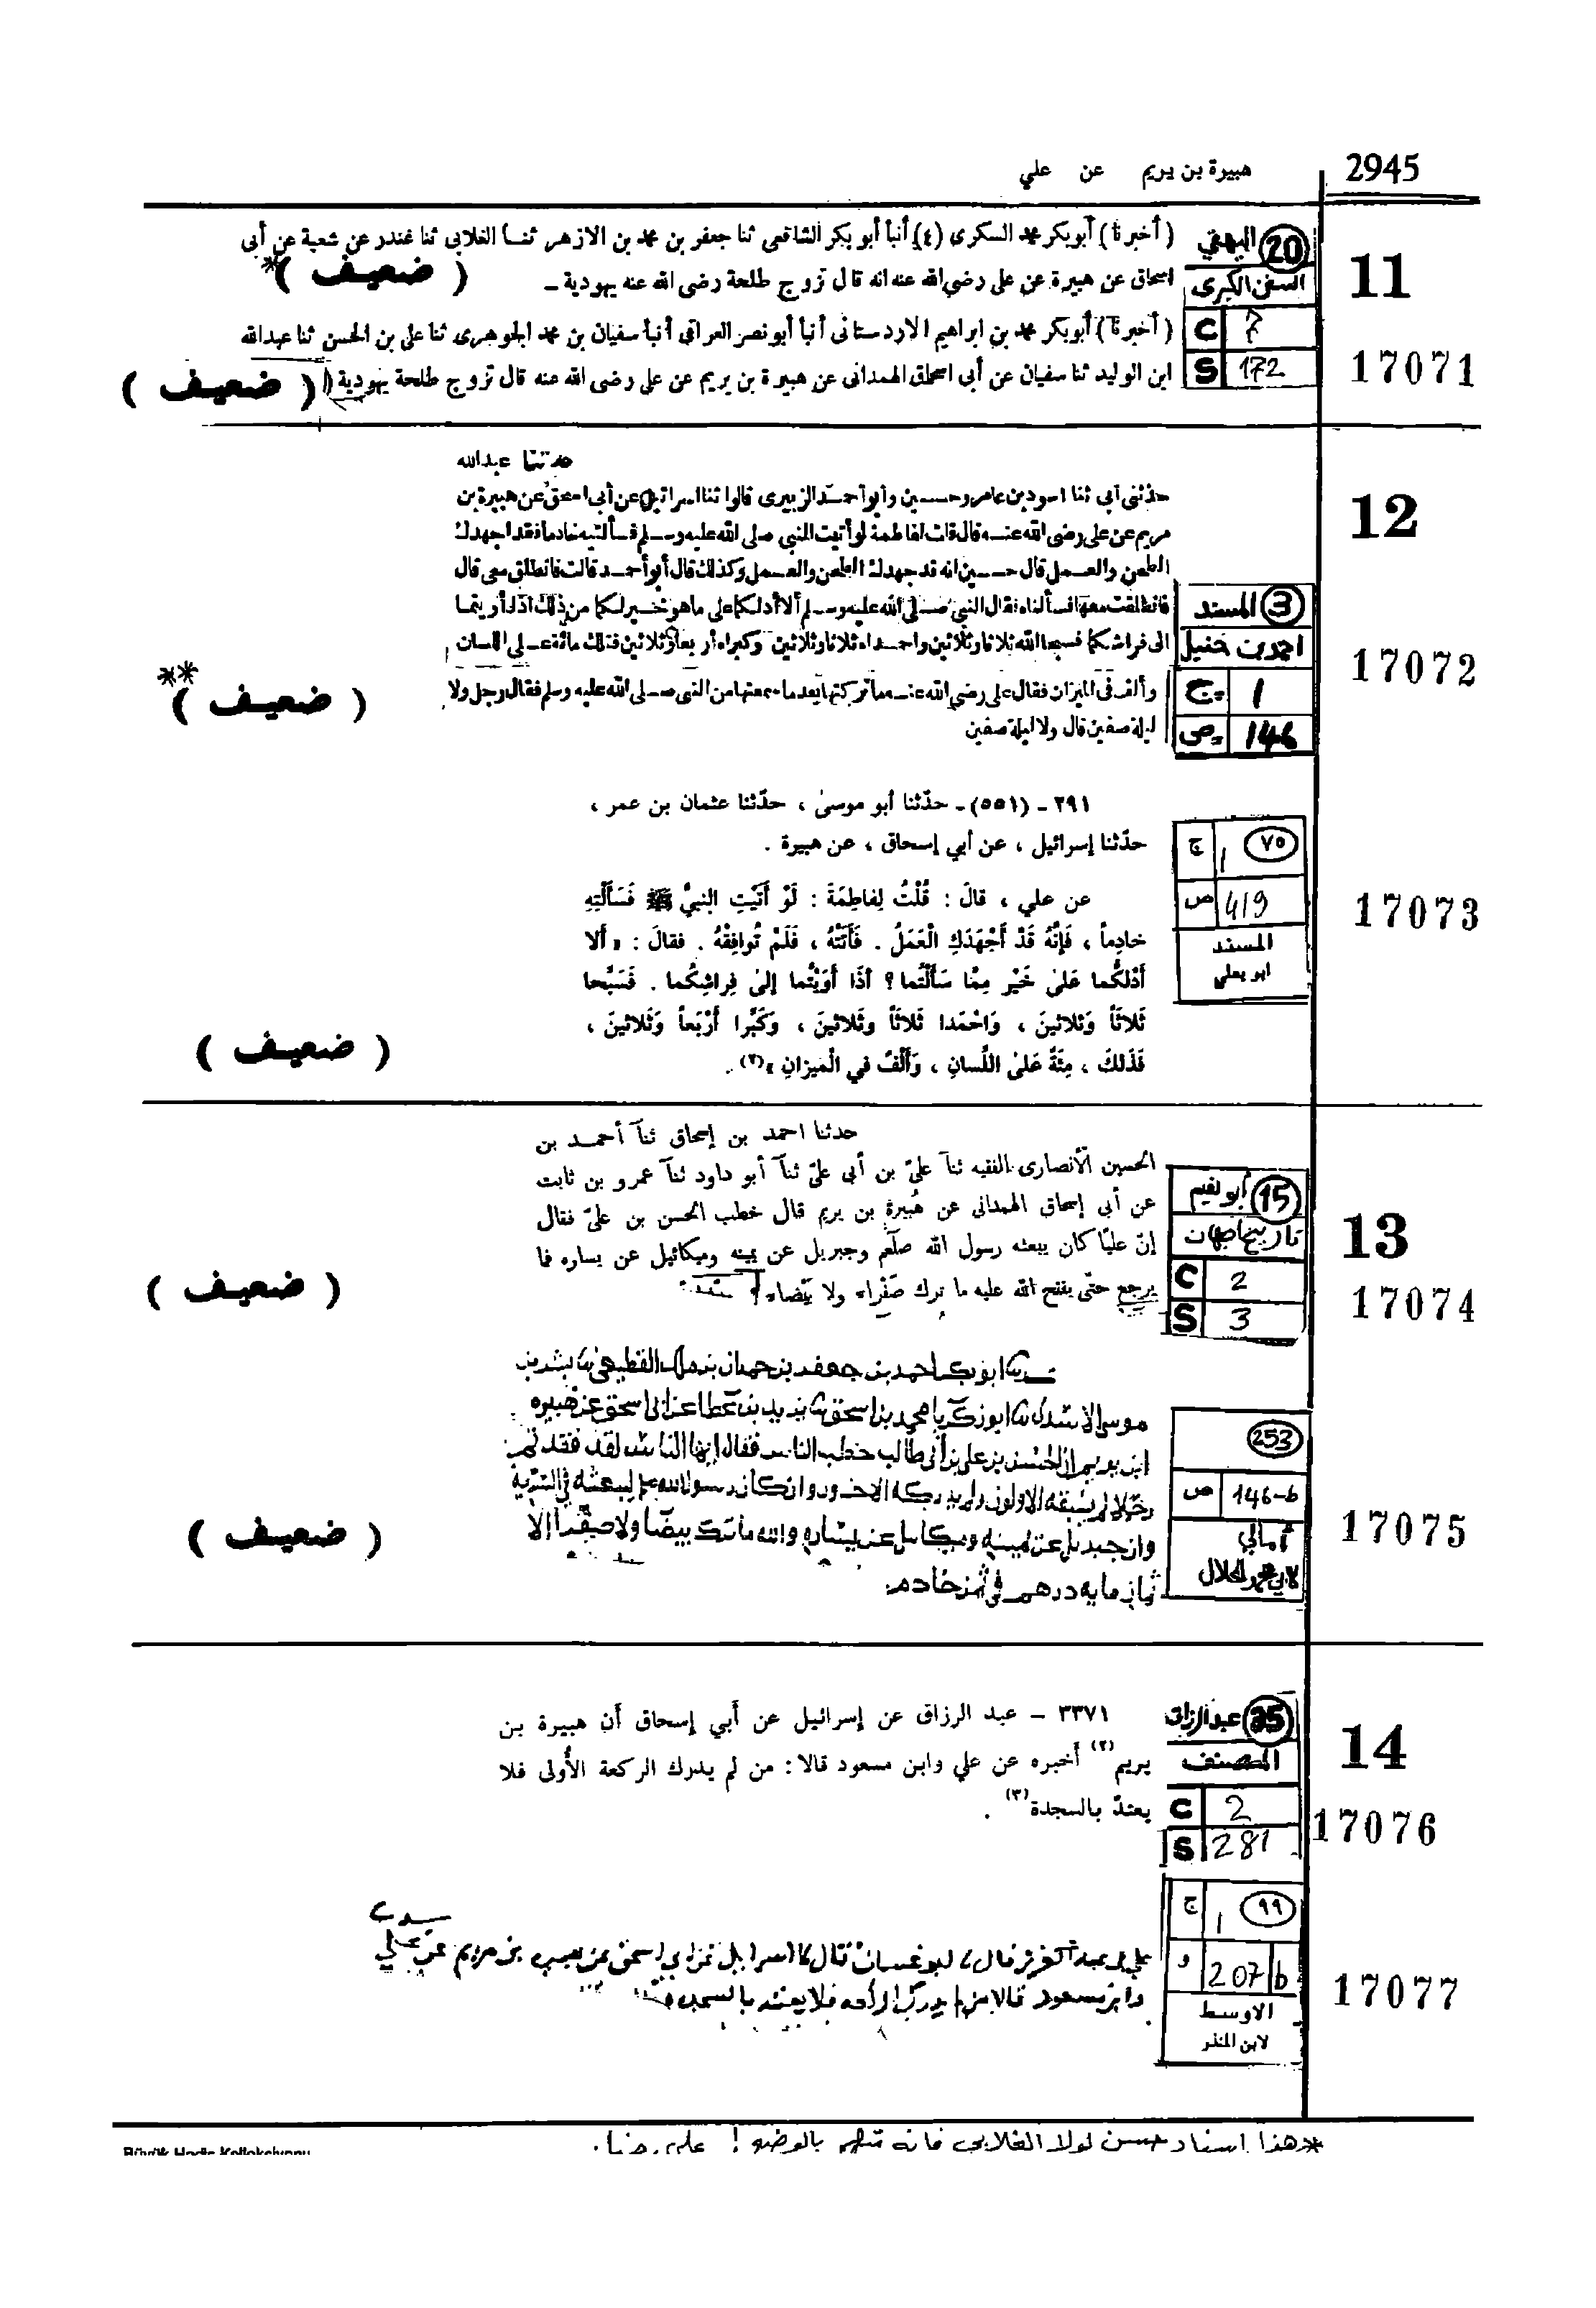 هبيرة بن يريم عن علي
2945
( أخبرنا ) أبوبكر محمد السكرى (٤) أنبأ أبو بكر الشافعى ثنا جعفر بن محمد بن الازهر ثنا الغلابى ثنا غندر عن شعبة عن أبى
اسحاق عن هبيرة عن على رضى الله عنه انه قال تزوج طلحة رضى الله عنه يهودية –
( ضعيف )*
( أخبرنا ) أبوبكر محمد بن ابراهيم الاردستانى أنبأ أبو نصر العراقى أنبأ سفيان بن محمد الجوهرى ثنا على بن الحسن ثنا عبدالله
ابن الوليد ثنا سفيان عن أبى اسحاق الهمدانى عن هبيرة بن يريم عن على رضى الله عنه قال تزوج طلحة يهودية
( ضعيف )
20 البيهقي
السنن الكبرى
C
S 172
11
17071
حدثنا عبدالله
حدثنى أبى ثنا اسود بن عامر وحسين وأبو أحمد الزبيرى قالوا ثنا اسرائيل عن أبى اسحق عن هبيرة بن
مريم عن على رضى الله عنه قال قلت لفاطمة لو أتيت النبى صلى الله عليه وسلم فسألتيه خادما فقد اجهدك
الطحن والعمل قال حسين انه قد جهدك الطحن والعمل وكذلك قال أبو أحمد قالت فانطلق معى قال
فانطلقت معها فسألناه فقال النبى صلى الله عليه وسلم ألا أدلكما على ما هو خير لكما من ذلك اذا أويتما
الى فراشكما فسبحا الله ثلاثا وثلاثين واحمداه ثلاثا وثلاثين وكبراه أربعا وثلاثين فتلك مائة على اللسان
وألف فى الميزان فقال على رضى الله عنه ما تركتها بعد ما سمعتها من النبى صلى الله عليه وسلم فقال رجل ولا
ليلة صفين قال ولا ليلة صفين
( ضعيف )**
3 المسند
احمد بن حنبل
ج 1
ص 146
12
17072
٢٩١ - (٥٥١) - حدّثنا أبو موسىٰ ، حدّثنا عثمان بن عمر ،
حدّثنا إسرائيل ، عن أبي إسحاق ، عن هبيرة .
عن علي ، قالَ : قُلْتُ لِفاطِمَةَ : لَوْ أَتَيْتِ النبيَّ ﷺ فَسَأَلْتِهِ
خادِماً ، فَإِنَّهُ قَدْ أَجْهَدَكِ الْعَمَلُ . فَأَتَتْهُ ، فَلَمْ تُوافِقْهُ . فقالَ : « أَلا
أَدُلُّكُما عَلىٰ خَيْرٍ مِمَّا سَأَلْتُما؟ اذَا أوَيْتُما إلىٰ فِراشِكُما . فَسَبِّحا
ثَلاثَاً وَثَلاثينَ ، وَاحْمَدا ثَلاثاً وثَلاثينَ ، وَكَبِّرا أَرْبَعاً وَثَلاثينَ ،
فَذَلكَ ، مِئَةٌ عَلىٰ اللِّسانِ ، وَأَلْفٌ في الْميزانِ »(٢) .
( ضعيف )
٧٥ ١ ج
419 ص
المسند
ابو يعلى
17073
حدثنا احمد بن إسحاق ثنا أحمد بن
الحسين الأنصارى الفقيه ثنا علىّ بن أبى علىّ ثنا أبو داود ثنا عمرو بن ثابت
عن أبى إسحاق الهمدانى عن هُبيرة بن يريم قال خطب الحسن بن علىّ فقال
إنّ عليّا كان يبعثه رسول الله صلّعم وجبريل عن يمينه وميكائيل عن يساره فما
يرجع حتّى يفتح الله عليه ما ترك صَفْراء ولا بَيْضاء
( ضعيف )
15 أبو نعيم
تاريخ اصبهان
C 2
S 3
13
17074
ابو بكر احمد بن جعفر بن حمدان بن ملك القطيعى نا بشر بن
موسى الاسدى نا ابو زكريا يحيى بن اسحق نا يزيد بن عطا عن ابى اسحق عن هبيره
ابن يريم ان الحسن بن على بن أبى طالب خطب الناس فقال ايها الناس لقد فقدتم
رجلا لم يسبقه الاولون ولم يدركه الاخرون وان كان رسول الله صلم ليبعثه فى السرية
وان جبريل عن يمينه وميكائيل عن يساره والله ما ترك بيضا ولا صفرا الا
ثمان مايه درهم فى ثمن خادم
( ضعيف )
253
146-b ص
أمالي
لابي محمد الخلال
17075
٣٣٧١ – عبد الرزاق عن إسرائيل عن أبي إسحاق أن هبيرة بن
يريم(٢) أخبره عن علي وابن مسعود قالا : من لم يدرك الركعة الأولى فلا
يعتدّ بالسجدة(٣) .
35 عبد الرزاق
المصنف
C 2
S 281
14
17076
علي بن عبد العزيز قال ابو غسان قال اسرايل عن ابي اسحق عن بن مريم عن علي
وابن مسعود قالا من لم يدرك فلا يعتد بالسجده
٩٩ ١ ج
207 b و
الاوسط
لابن المنذر
17077
*هذا اسناد حسن لولا الغلابي فانه متهم بالوضع ! علي رضا .
Büyük Hadis Kolleksiyonu